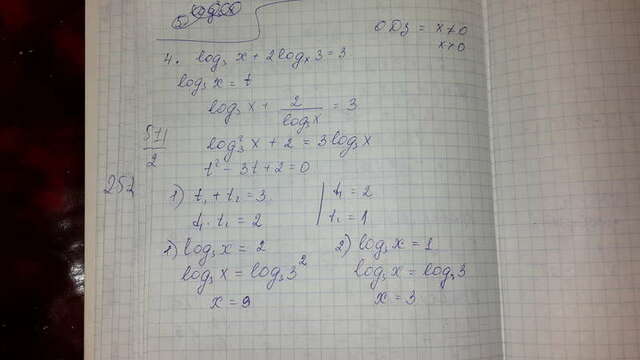 5.
ОДЗ = x≠0
x>0
4. log₃ x + 2logₓ 3 = 3
log₃ x = t
log₃ x + 2/log₃ x = 3
log₃² x + 2 = 3 log₃ x
t² - 3t + 2 = 0
1) t₁ + t₂ = 3 | t₁ = 2
t₁ · t₂ = 2 | t₂ = 1
1) log₃ x = 2 2) log₃ x = 1
log₃ x = log₃ 3² log₃ x = log₃ 3
x = 9 x = 3